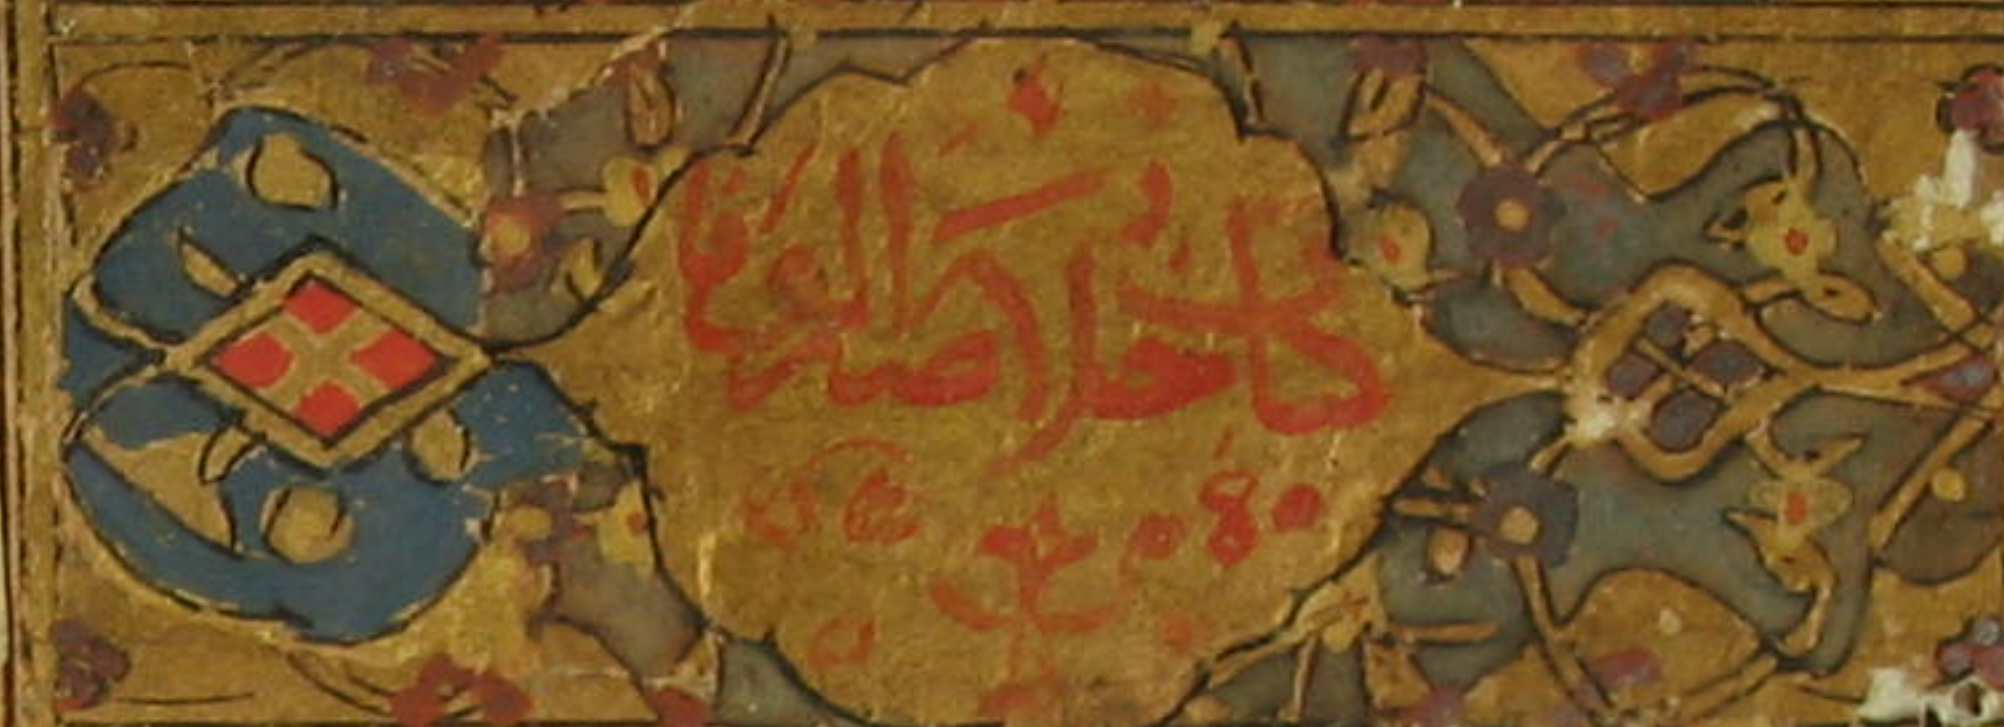 كتاب خلاصه الوفا